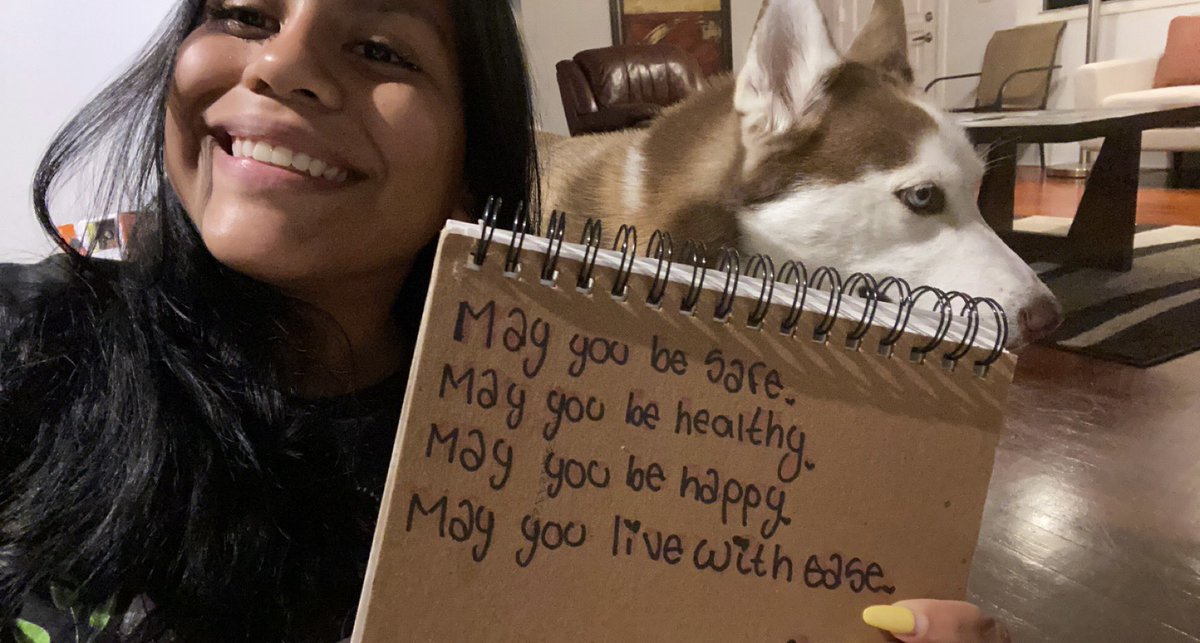 May you be safe.
May you be healthy.
May you be happy.
May you live with ease.